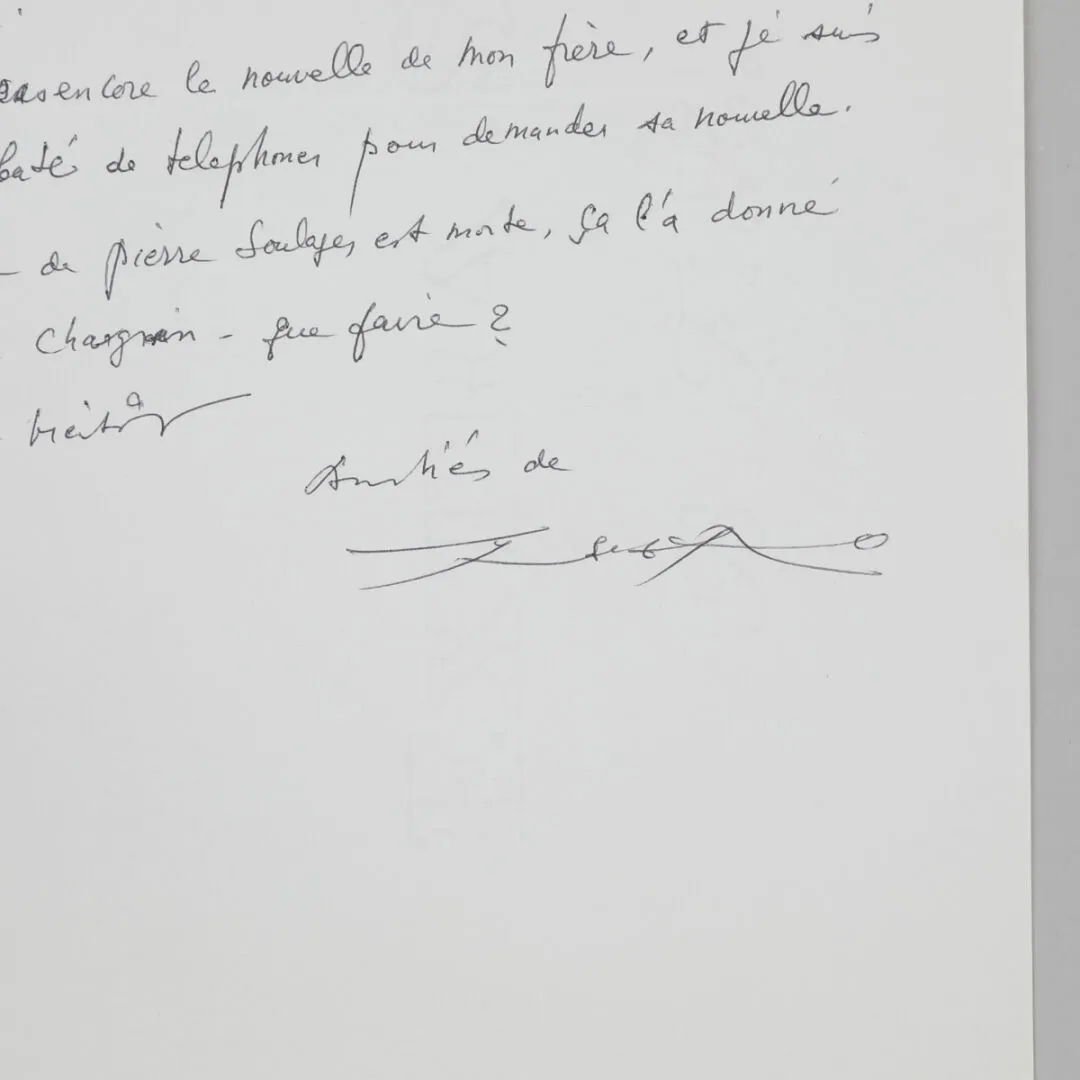 pas encore le nouvelle de mon frère, et je suis
de telephoner pour demander sa nouvelle.
de pierre Soulages est morte, ça l'a donné
chargrin - que faire ?
à bientôt
Amitiés de